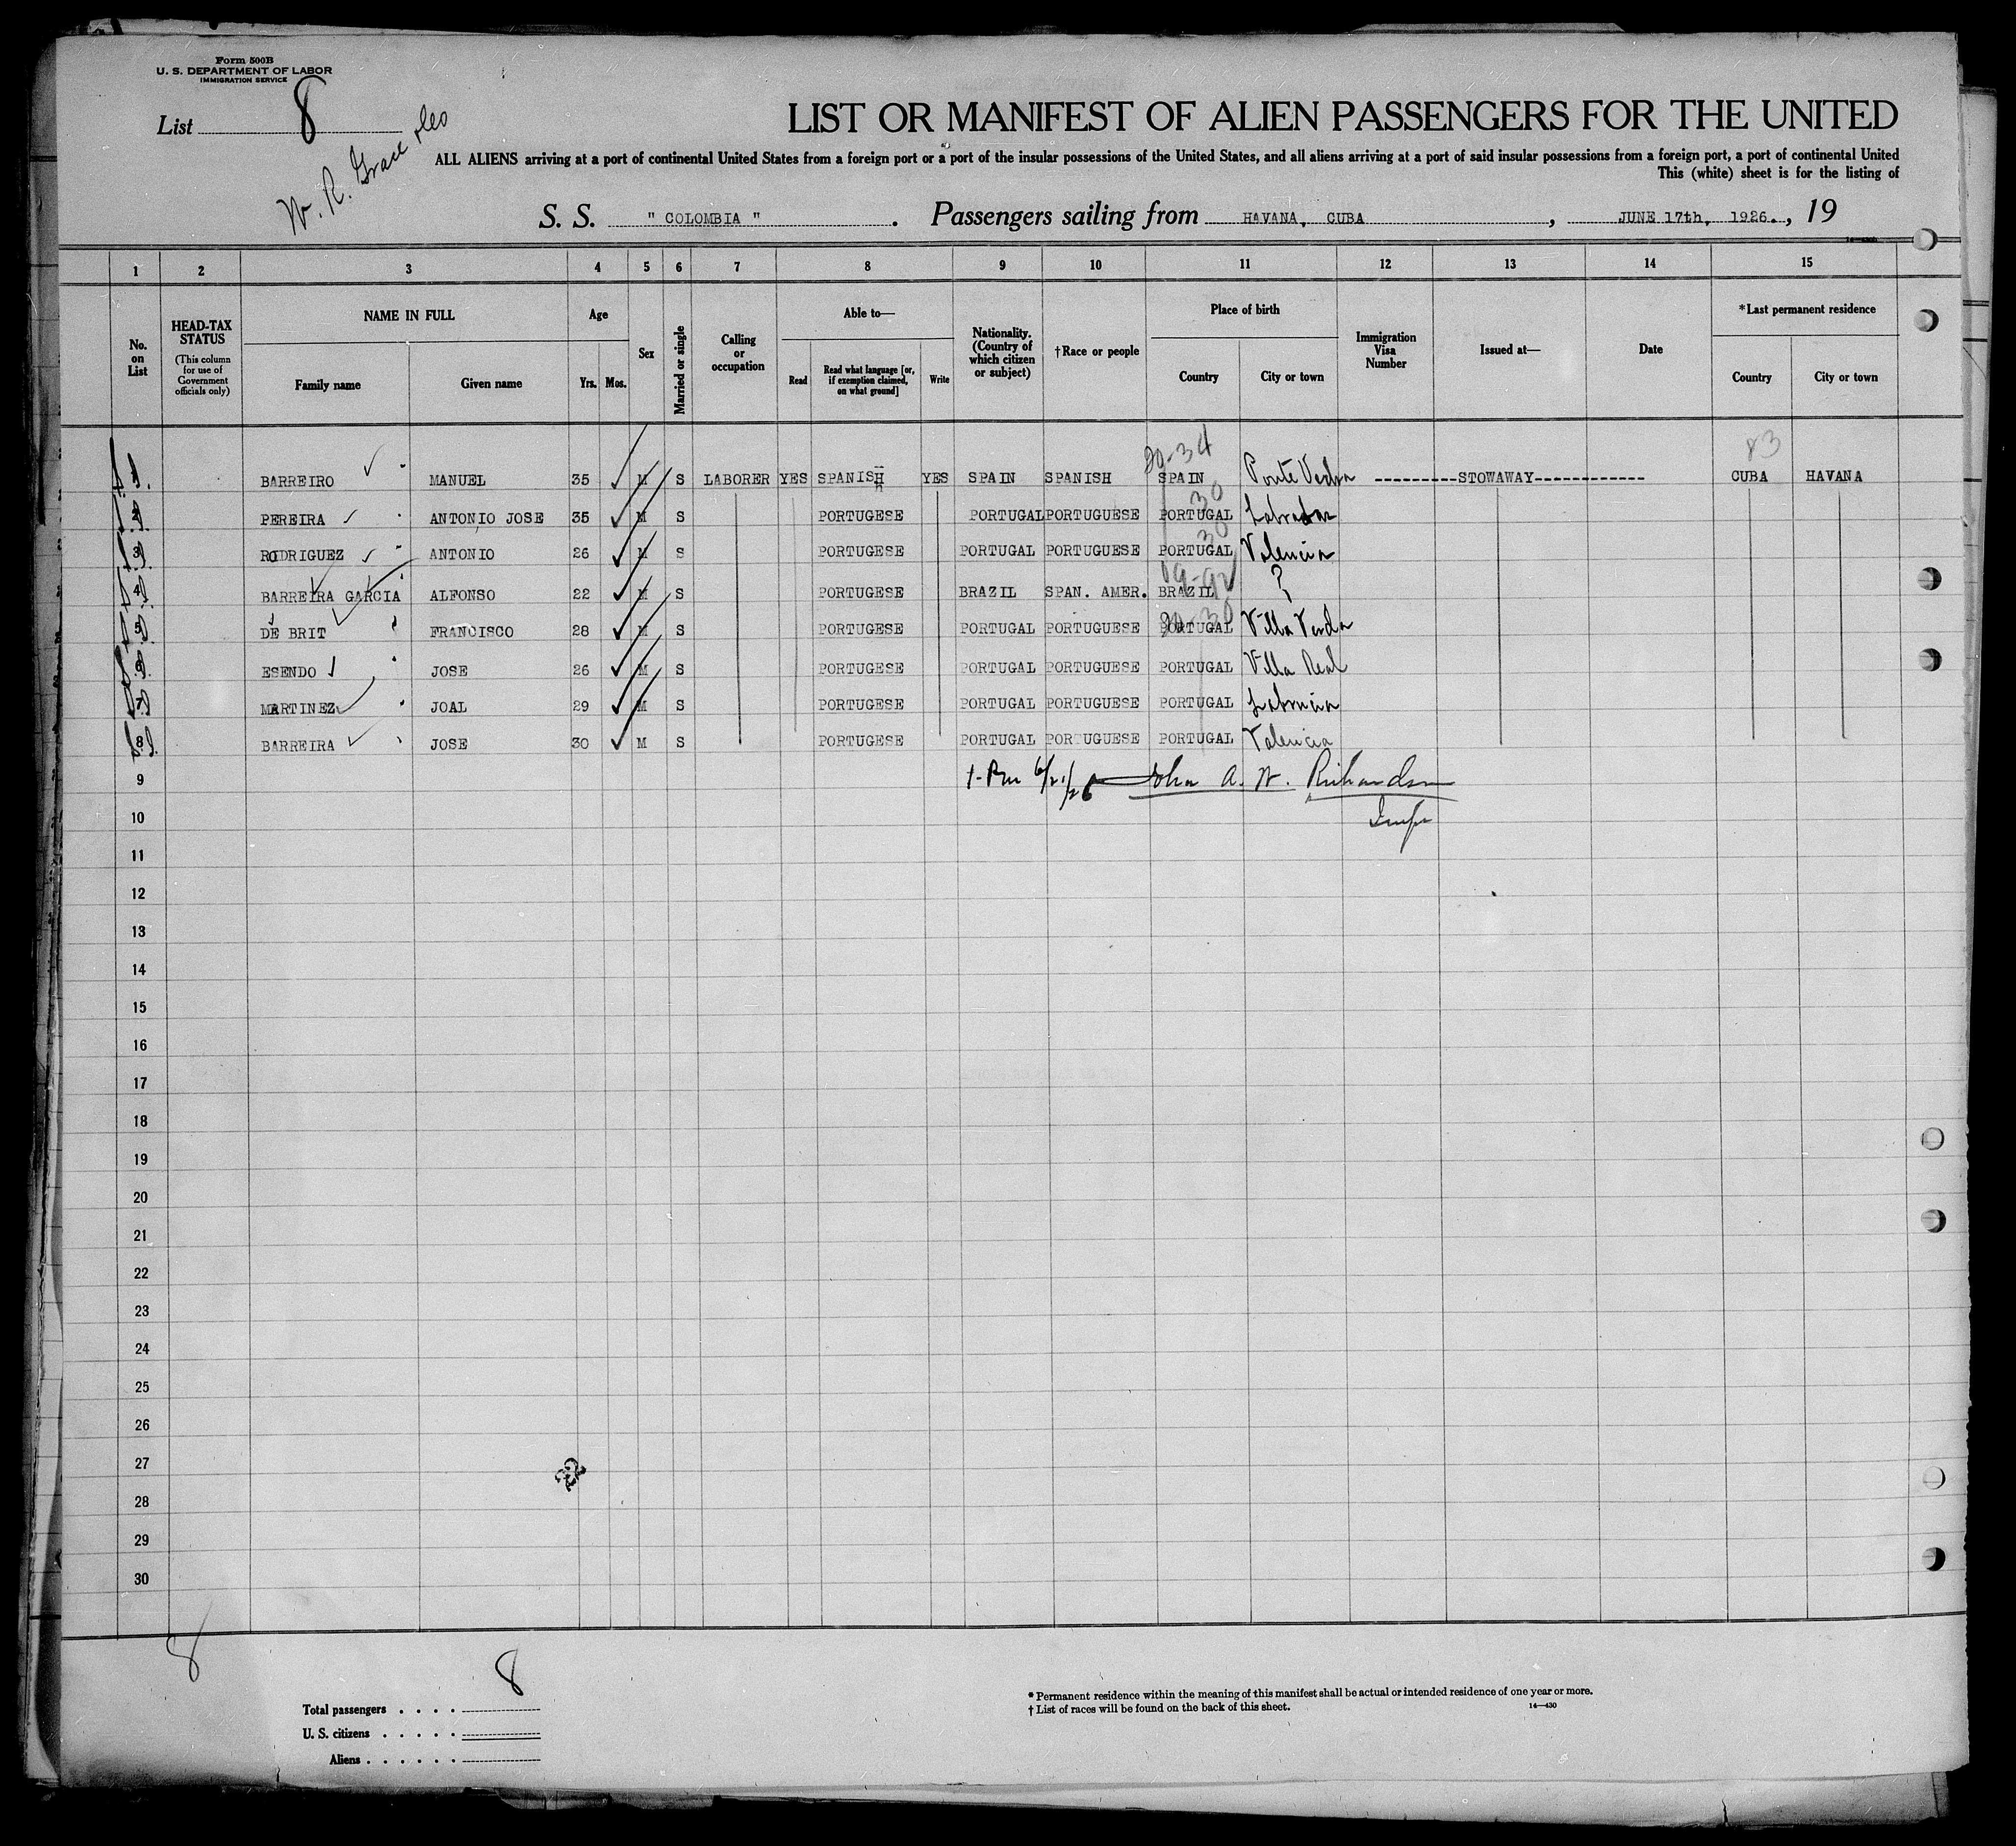 Form 500B
U. S. DEPARTMENT OF LABOR
IMMIGRATION SERVICE
List 8
W. R. Grace
LIST OR MANIFEST OF ALIEN PASSENGERS FOR THE UNITED
ALL ALIENS arriving at a port of continental United States from a foreign port or a port of the insular possessions of the United States, and all aliens arriving at a port of said insular possessions from a foreign port, a port of continental United
This (white) sheet is for the listing of
S. S. " COLOMBIA ". Passengers sailing from HAVANA, CUBA, JUNE 17th, 1926., 19
1 2 3 4 5 6 7 8 9 10 11 12 13 14 15
No. on List
HEAD-TAX STATUS (This column for use of Government officials only)
NAME IN FULL
Family name Given name
Age
Yrs. Mos.
Sex
Married or single
Calling or occupation
Able to—
Read Read what language [or, if exemption claimed, on what ground] Write
Nationality. (Country of which citizen or subject)
†Race or people
Place of birth
Country City or town
Immigration Visa Number
Issued at—
Date
*Last permanent residence
Country City or town
20-34 83
1 BARREIRO MANUEL 35 M S LABORER YES SPANISH YES SPAIN SPANISH SPAIN Ponte Vedra ---------STOWAWAY------------ CUBA HAVANA
30
2 PEREIRA ANTONIO JOSE 35 M S PORTUGESE PORTUGAL PORTUGUESE PORTUGAL
30
3 RODRIGUEZ ANTONIO 26 M S PORTUGESE PORTUGAL PORTUGUESE PORTUGAL Valencia
19-92
4 BARREIRA GARCIA ALFONSO 22 M S PORTUGESE BRAZIL SPAN. AMER. BRAZIL ?
5 DE BRIT FRANCISCO 28 M S PORTUGESE PORTUGAL PORTUGUESE PORTUGAL Villa Verda
6 ESENDO JOSE 26 M S PORTUGESE PORTUGAL PORTUGUESE PORTUGAL Villa Real
7 MARTINEZ JOAL 29 M S PORTUGESE PORTUGAL PORTUGUESE PORTUGAL
8 BARREIRA JOSE 30 M S PORTUGESE PORTUGAL PORTUGUESE PORTUGAL Valencia
9 6/21/26 John A. W. Richardson
10 Insp
11
12
13
14
15
16
17
18
19
20
21
22
23
24
25
26
27
28
29
30
8
8
Total passengers . . . .
U. S. citizens . . . . .
Aliens . . . . . .
* Permanent residence within the meaning of this manifest shall be actual or intended residence of one year or more.
† List of races will be found on the back of this sheet. 14—430